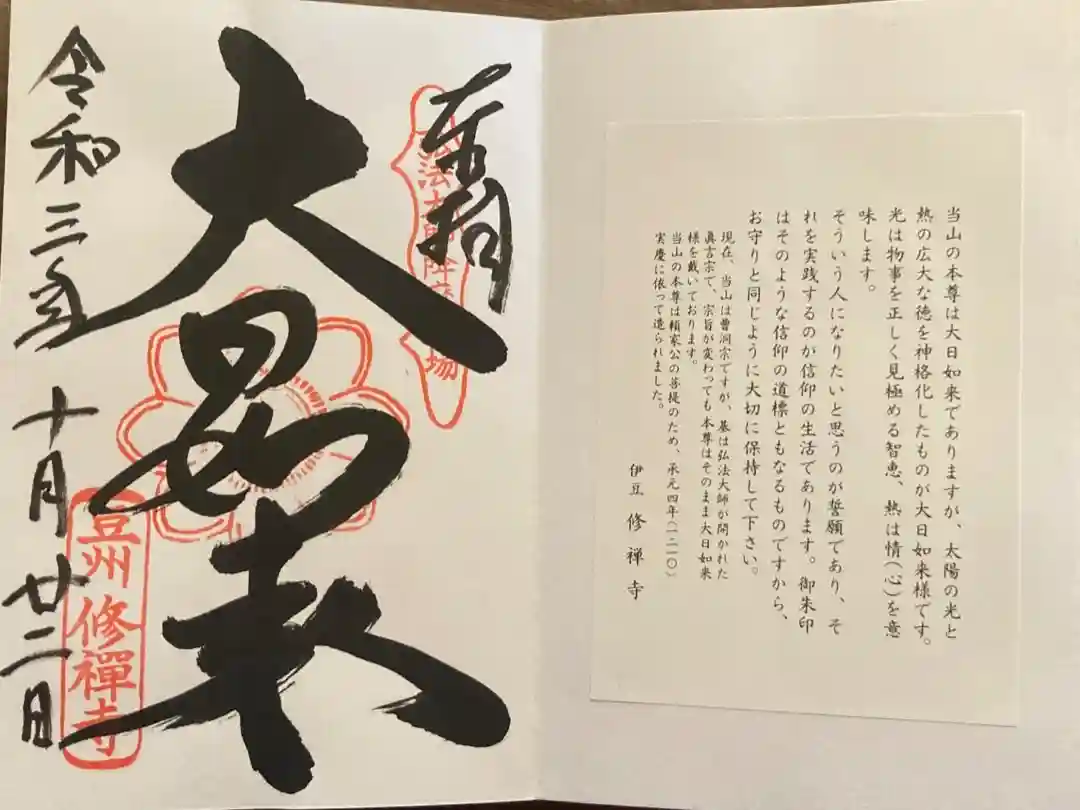 奉拝
大日如来
令和三年 十月廿二日
弘法大師
場
豆州修禅寺
当山の本尊は大日如来でありますが、太陽の光と
熱の広大な徳を神格化したものが大日如来様です。
光は物事を正しく見極める智恵、熱は情(心)を意
味します。
そういう人になりたいと思うのが誓願であり、そ
れを実践するのが信仰の生活であります。御朱印
はそのような信仰の道標ともなるものですから、
お守りと同じように大切に保持して下さい。
現在、当山は曹洞宗ですが、基は弘法大師が開かれた
眞言宗で、宗旨が変わっても本尊はそのまま大日如来
様を戴いております。
当山の本尊は頼家公の菩提のため、承元四年(一二一〇)
実慶に依って造られました。
伊豆 修禅寺